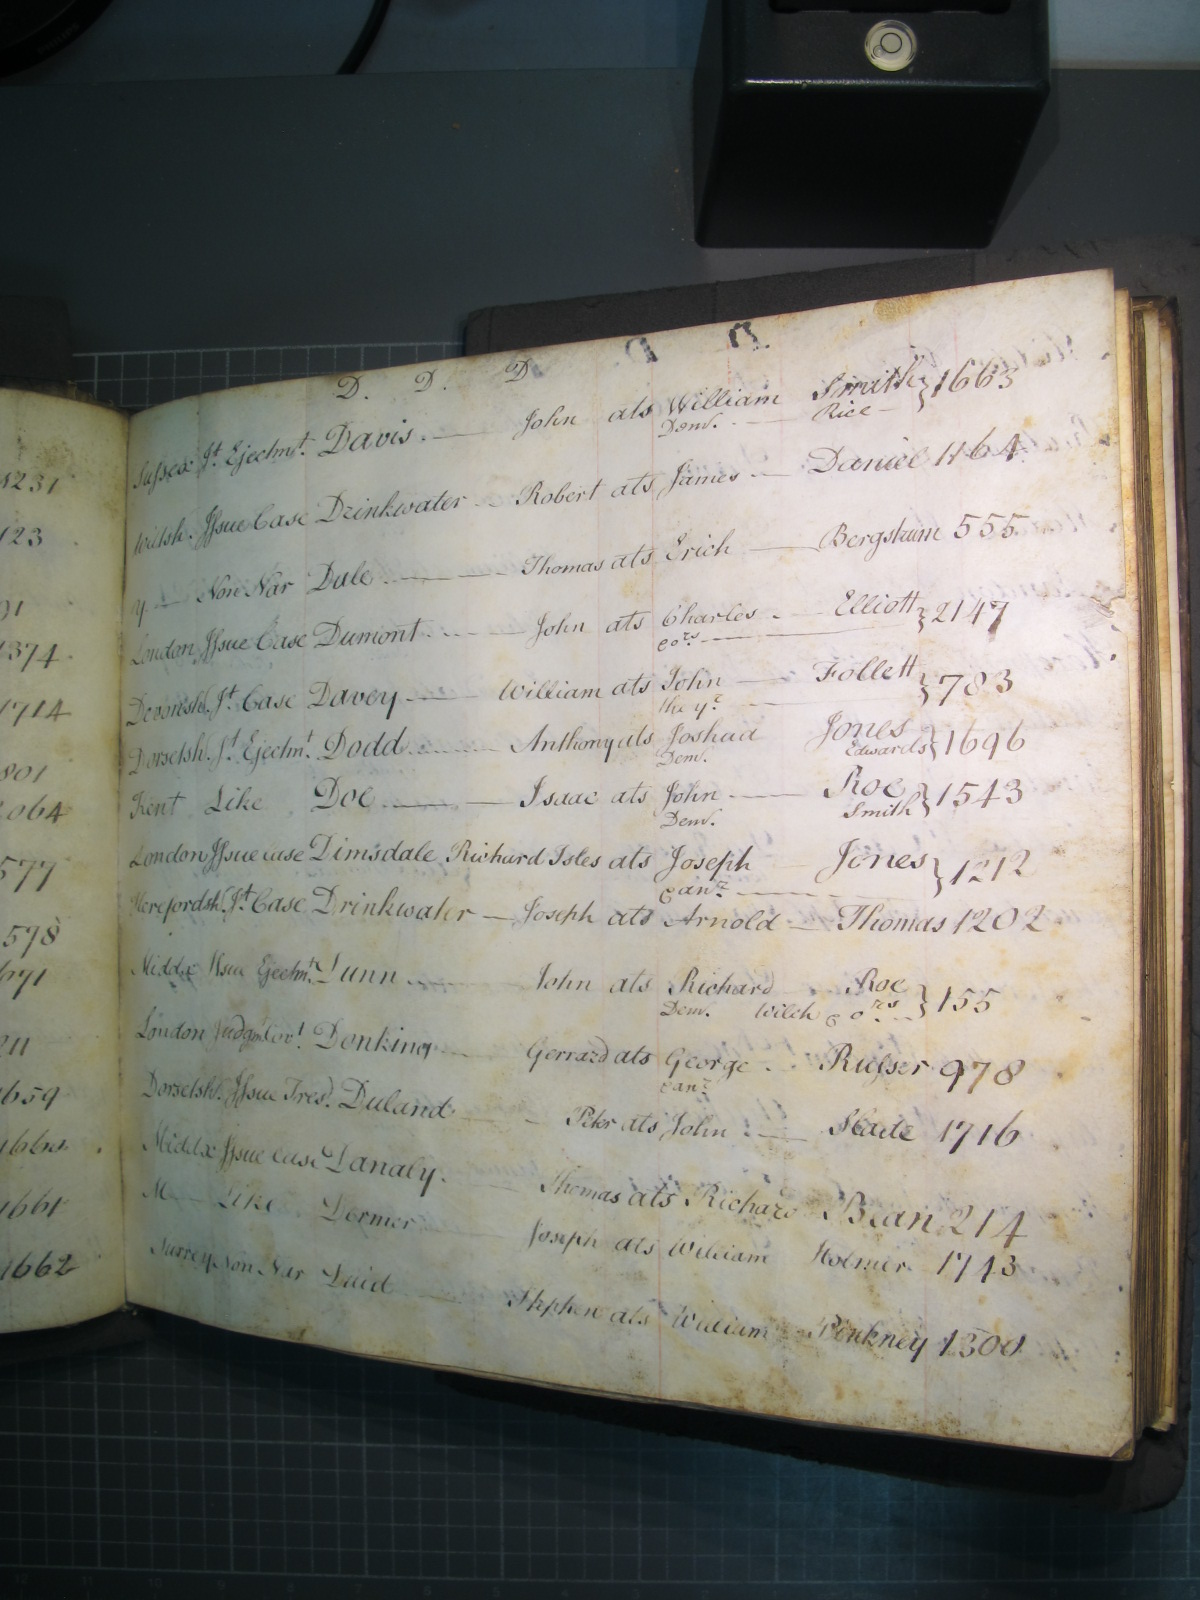 1231
123
91
1374
1714
801
064
577
578
671
211
1659
1660
1661
1662
D. D. D
Sussex Jt. Ejectmt. Davis. John ats William Smith } 1663
Dem. Rice
Wiltsh. Issue Case Drinkwater Robert ats James Daniel 1164
Y. Non Nar Dule Thomas ats Erich Bergstrum 555
London Issue Case Dumont John ats Charles Elliott } 2147
& ors.
Devonsh. Jt. Case Davey William ats John Follett } 783
the yr.
Dorsetsh. Jt. Ejectmt. Dodd Anthony ats Joshua Jones } 1696
Dem. Edwards
Kent Like Doe Isaac ats John Roe } 1543
Dem. Smith
London Issue Case Dimsdale Richard Isles ats Joseph Jones } 1212
& anr.
Herefordsh. Jt. Case Drinkwater Joseph ats Arnold Thomas 1202
Middx Issue Ejectmt. Dunn John ats Richard Roe } 155
Dem. Welch & ors.
London Judgmt. Covt. Donking Gerrard ats George Russer 978
& anr.
Dorsetsh. Issue Tres. Duland Peter ats John Slade 1716
Middx Issue Case Danaly. Thomas ats Richard Bean 214
M Like Dormer Joseph ats William Holmer 1743
Surrey Non Nar Stephen ats William Pinkney